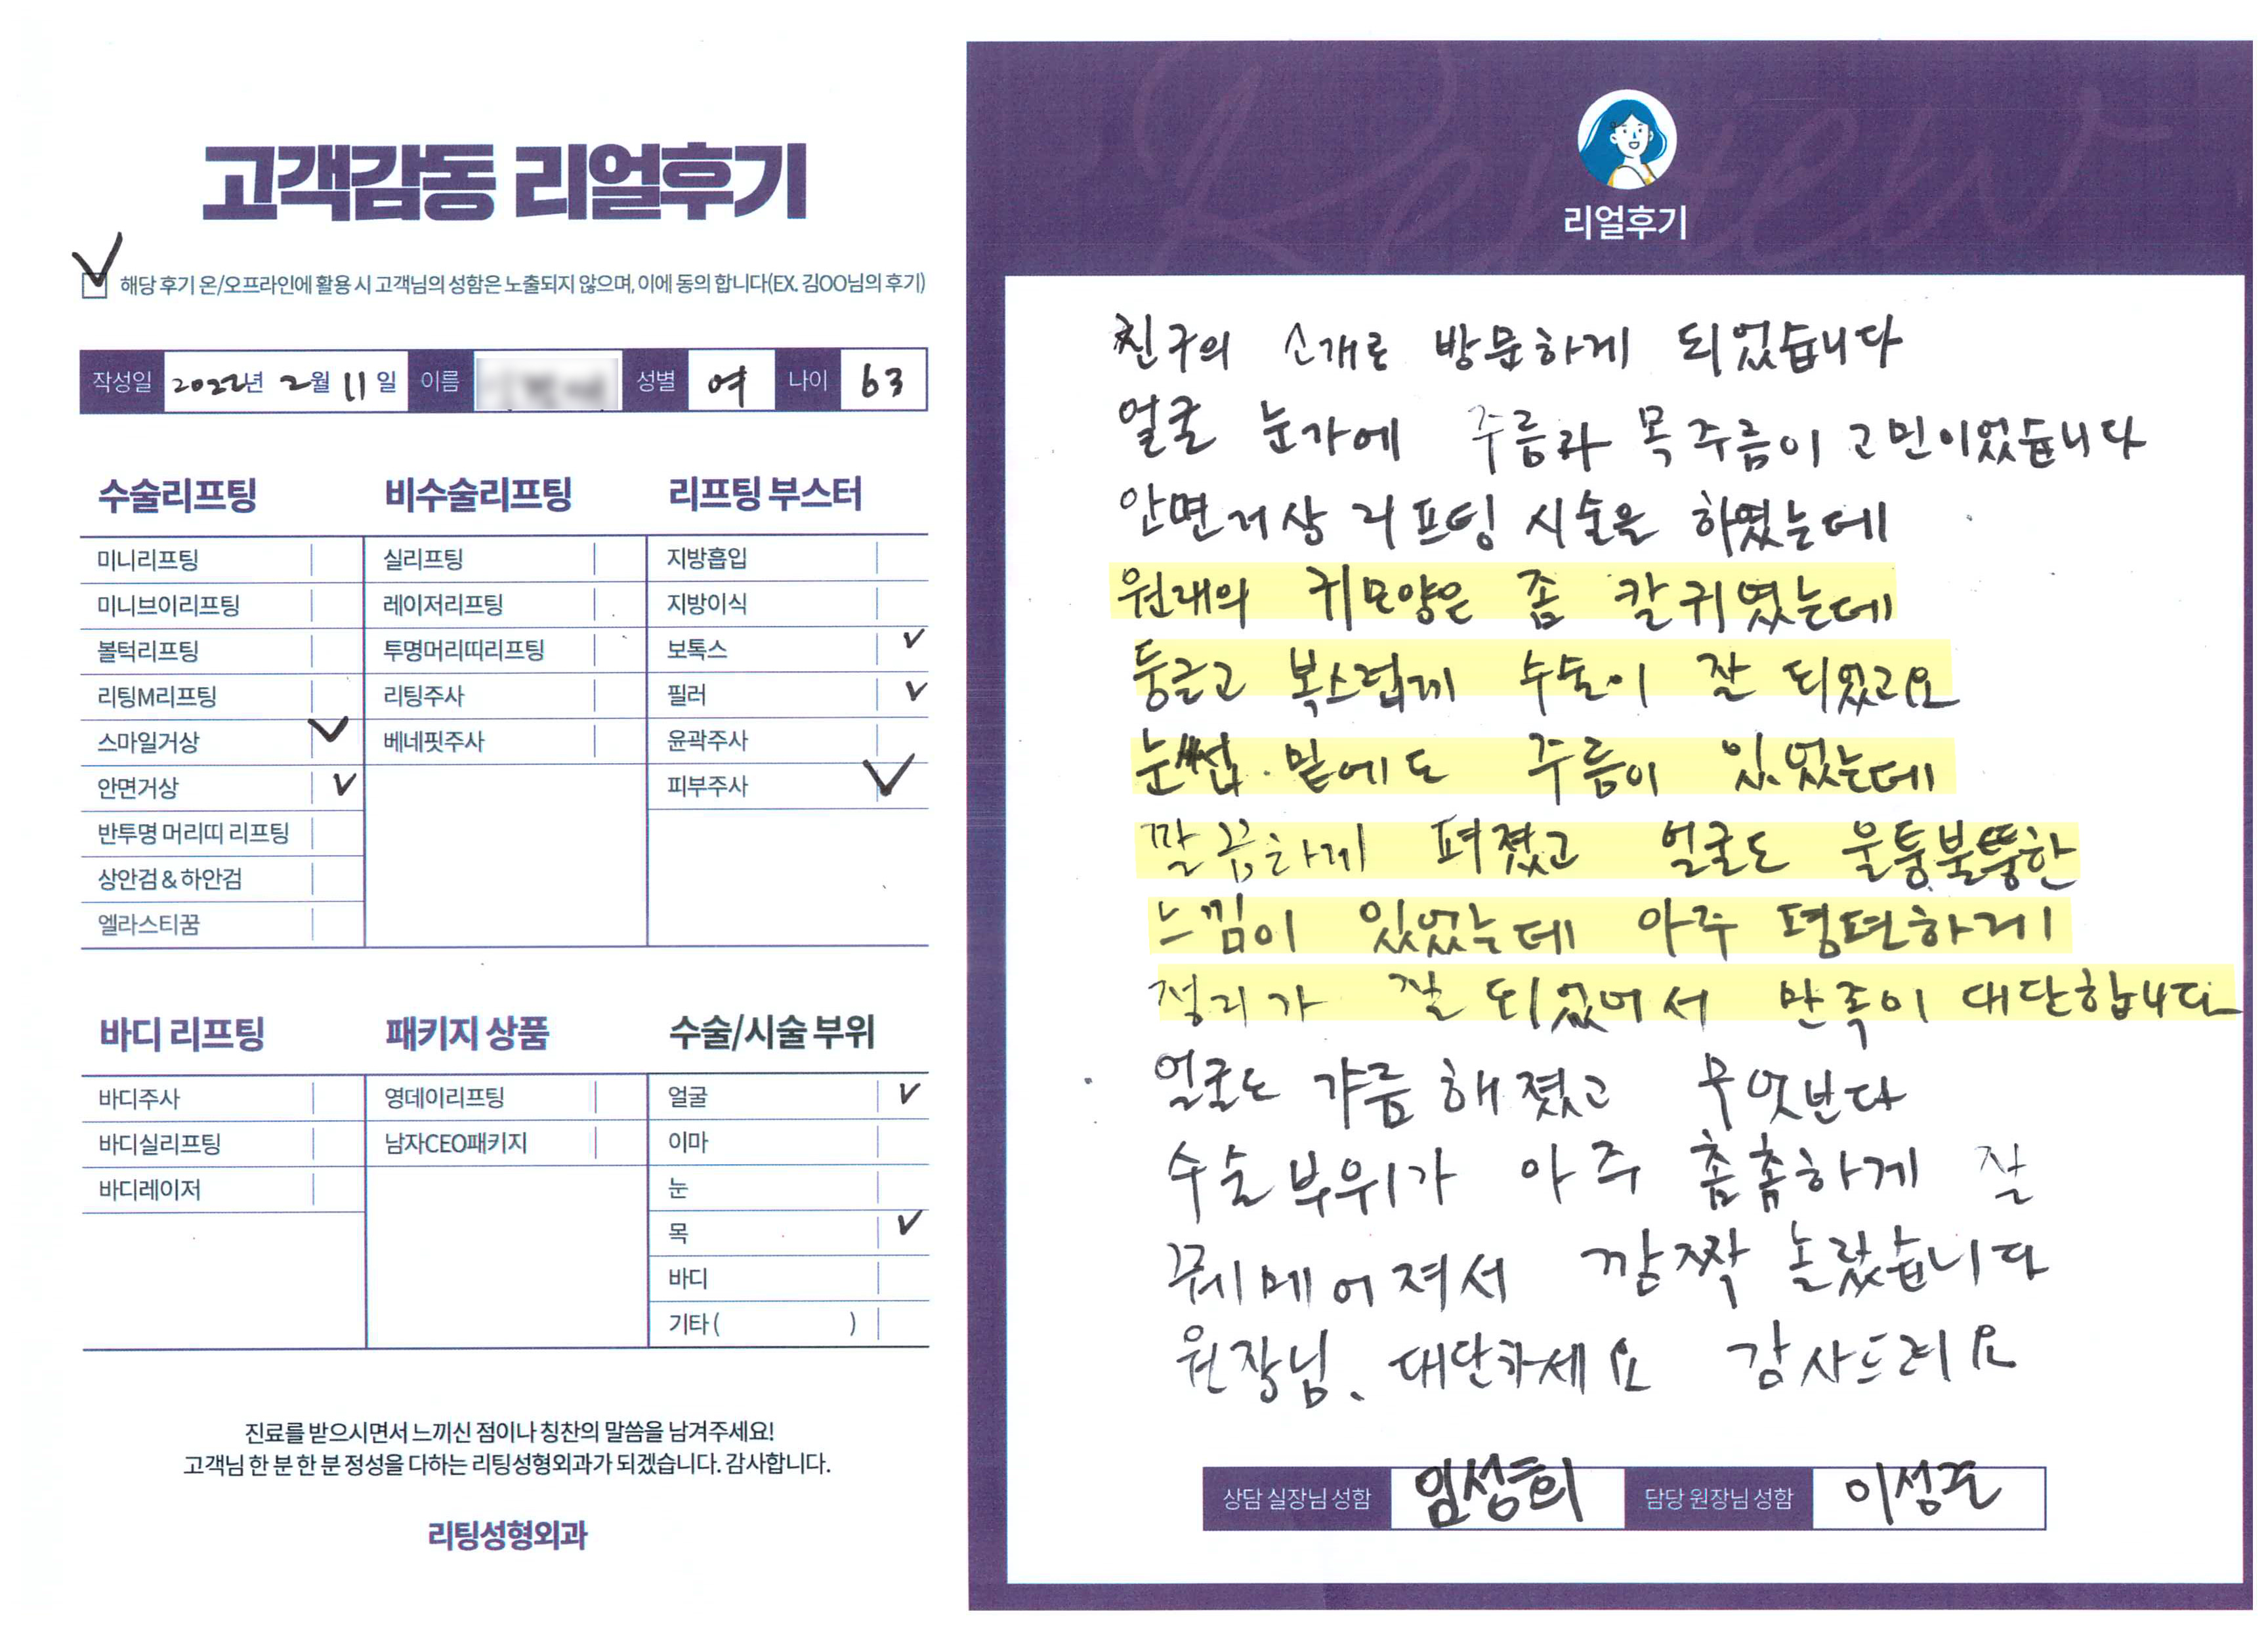 고객감동 리얼후기
해당 후기 온/오프라인에 활용 시 고객님의 성함은 노출되지 않으며, 이에 동의 합니다(EX. 김OO님의 후기)
작성일 2022년 2월 11일 이름 성별 여 나이 63
수술리프팅
미니리프팅
미니브이리프팅
볼턱리프팅
리팅M리프팅
스마일거상
안면거상
반투명 머리띠 리프팅
상안검 & 하안검
엘라스티꿈
비수술리프팅
실리프팅
레이저리프팅
투명머리띠리프팅
리팅주사
베네핏주사
리프팅 부스터
지방흡입
지방이식
보톡스
필러
윤곽주사
피부주사
바디 리프팅
바디주사
바디실리프팅
바디레이저
패키지 상품
영데이리프팅
남자CEO패키지
수술/시술 부위
얼굴
이마
눈
목
바디
기타 ( )
진료를 받으시면서 느끼신 점이나 칭찬의 말씀을 남겨주세요!
고객님 한 분 한 분 정성을 다하는 리팅성형외과가 되겠습니다. 감사합니다.
리팅성형외과
Review
리얼후기
친구의 소개로 방문하게 되었습니다
얼굴 눈가에 주름과 목주름이 고민이었습니다
안면거상 리프팅 시술을 하였는데
원래의 귀모양은 좀 칼귀였는데
둥글고 복스럽게 수술이 잘 되었고요
눈썹 밑에도 주름이 있었는데
깔끔하게 펴졌고 얼굴도 울퉁불퉁한
느낌이 있었는데 아주 평편하게
정리가 잘 되었어서 만족이 대단합니다
얼굴도 갸름해졌고 무엇보다
수술부위가 아주 촘촘하게 잘
꿰메어져서 깜짝 놀랐습니다
원장님. 대단하세요 감사드려요
상담 실장님 성함 임성희 담당 원장님 성함 이성준